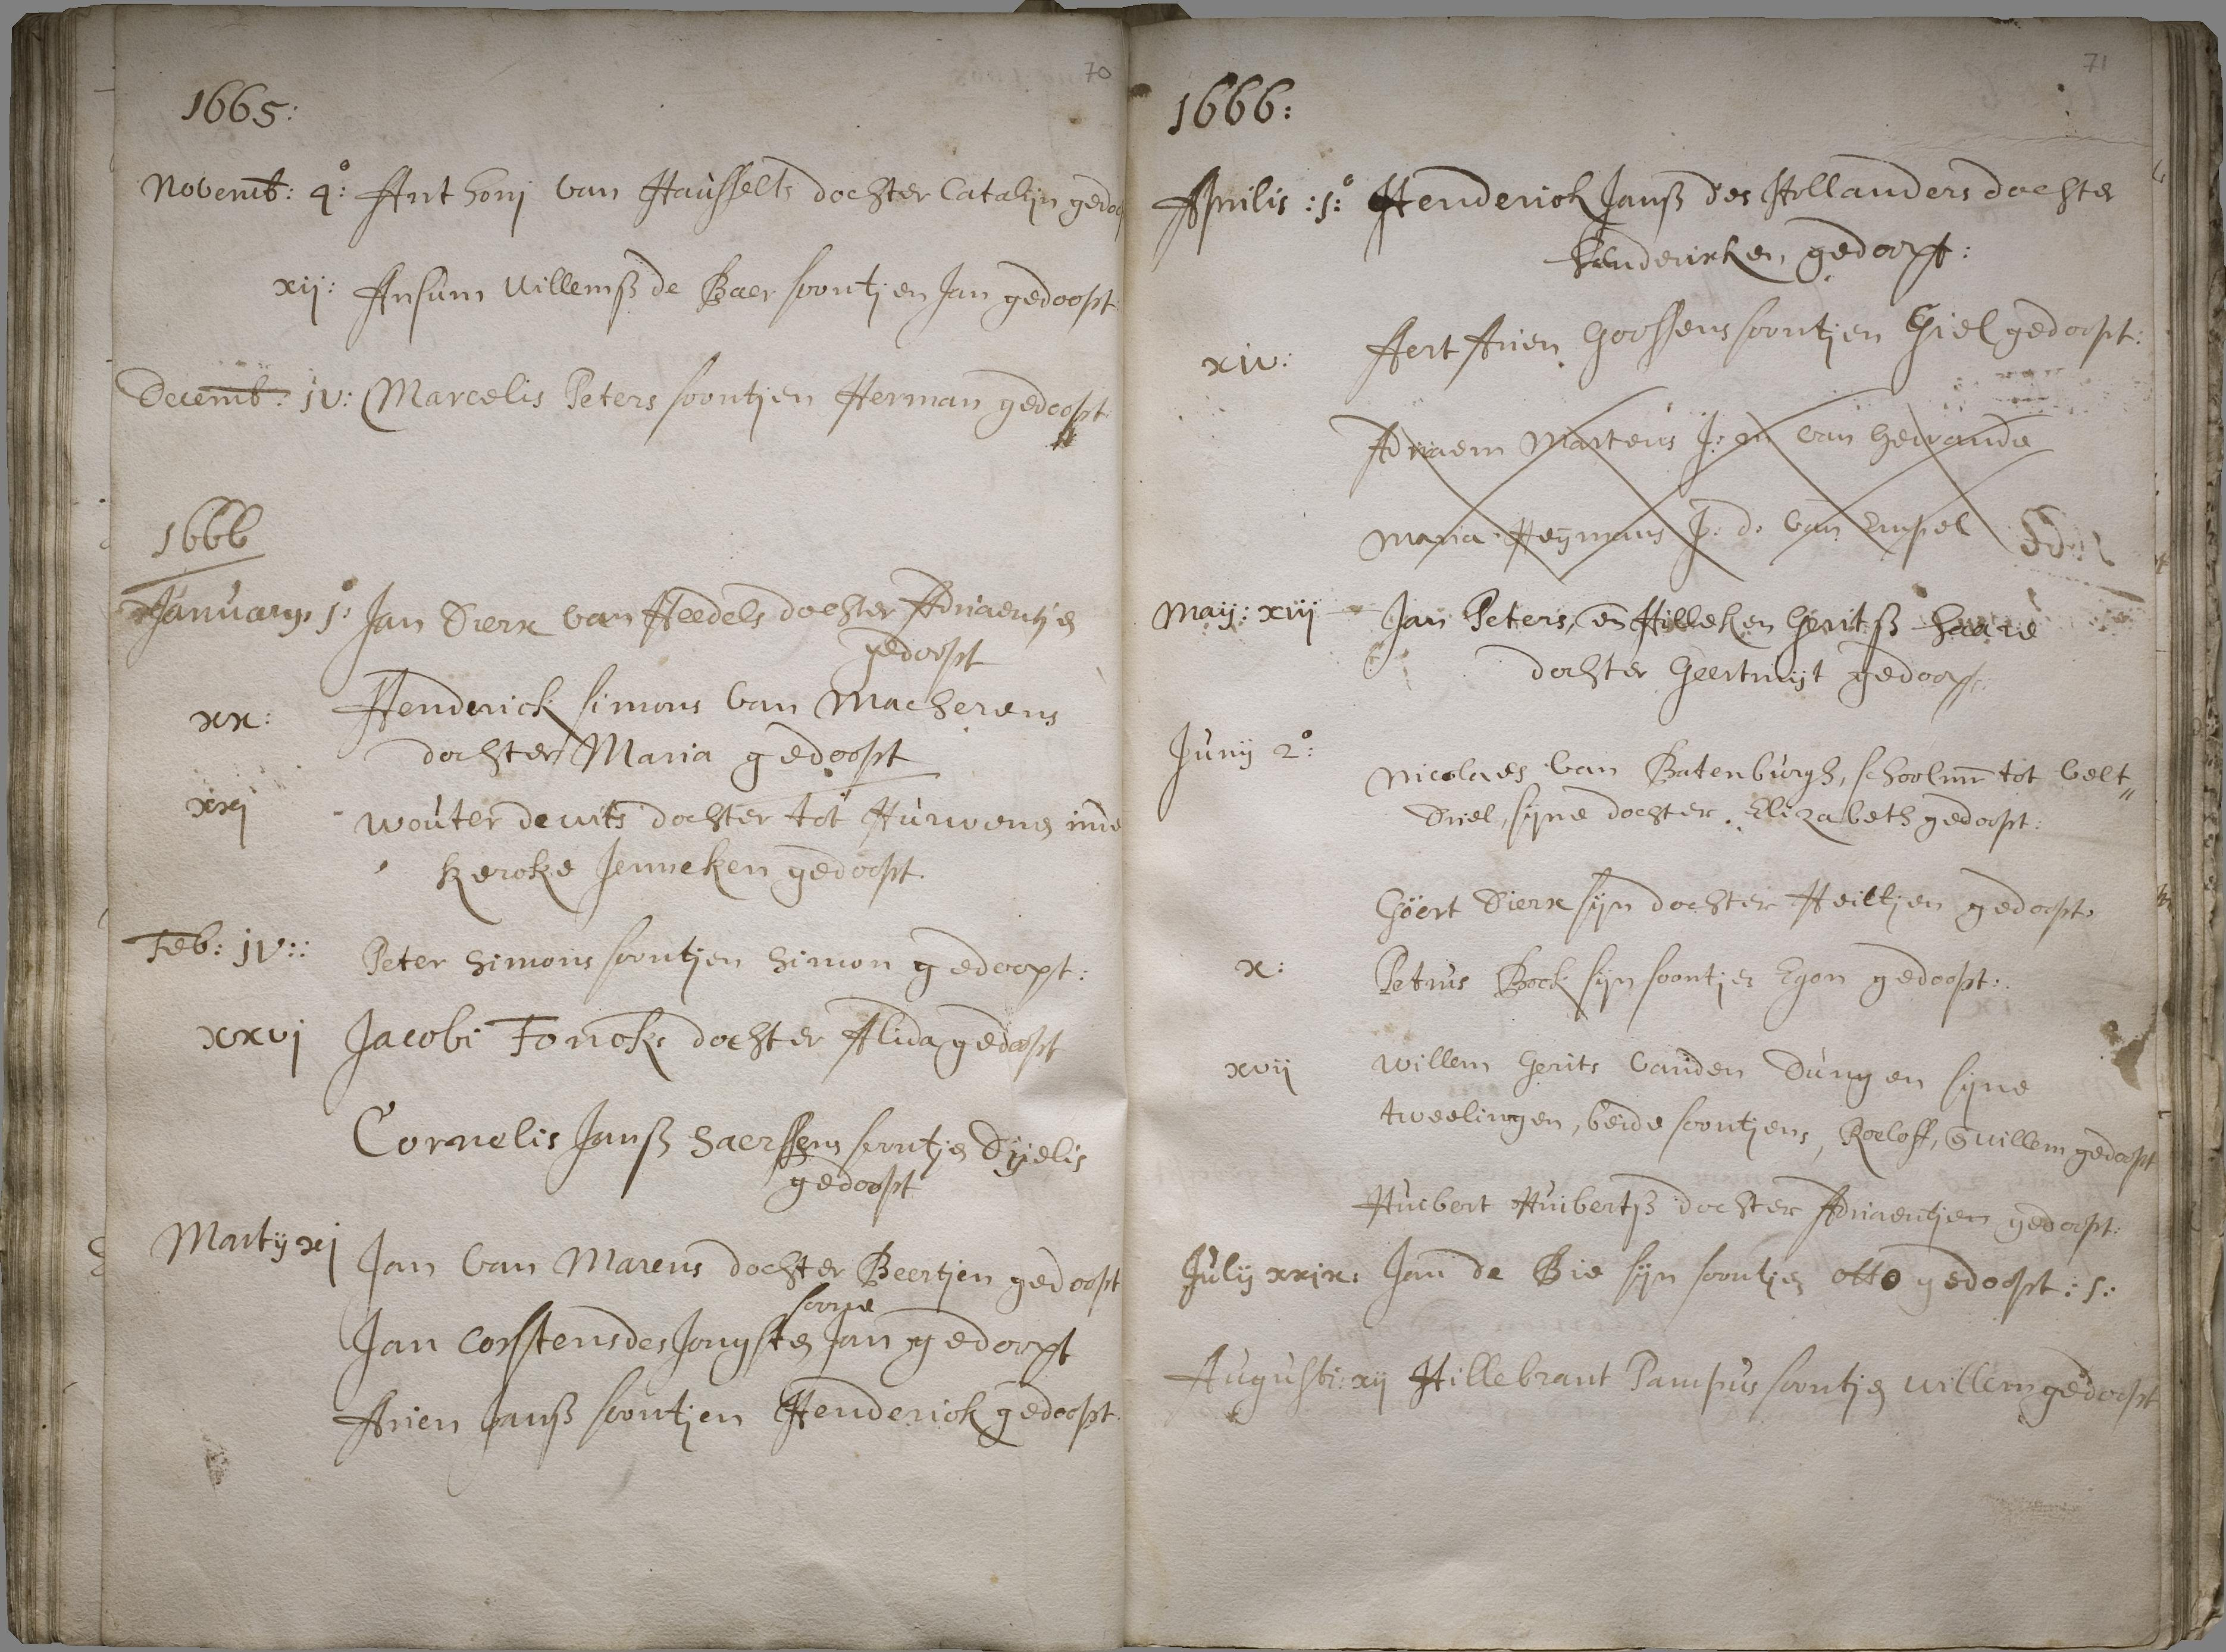 70
1665:
Novemb: 4°: Anthonij van Hausselts dochter Catalijn gedoo
xij: Ansum Willemß de Baer soontjen Jan gedoopt
Decemb: jv: Marcelis Peters soontjen Herman gedoopt
1666
January 1°: Jan Dierx van Heedels dochter Adriaentje
gedoopt
xx: Henderick Simons van Macherens
dochter Maria gedoopt
xxj Wouter de Wits dochter tot Hurwenen inde
kercke Jenneken gedoopt.
Feb: jv:: Peter Simons soontjen Simon gedoopt:
xxvj Jacobi Foncks dochter Alida gedoopt
Cornelis Janß soontje Dijelis
gedoopt
Martij xj Jan van Marens dochter Beertjen gedoopt
soone
Jan Corstens des Jongsten Jan gedoopt
Arien Janß soontjen Henderick gedoopt
71
1666:
Aprilis :1°: Henderick Janß des Hollanders dochter
Henderixken gedoopt:
xiv: Aert Arien Goossens soontjen Giel gedoopt:
Adriaem Martens J: m van Hewande
Maria Heymans J: d: van Empel
Maij: xiij Jan Peters, en Hilleken Geritß haare
dochter Geertruijt gedoopt:
Junij 2°: Nicolaes van Batenburgh, schoolmr tot Velt„
Driel, sijne dochter Elizabeth gedoopt:
Goert Dierx sijn dochter Heiltjen gedoopt.
x: Petrus Bock sijn soontje Egon gedoopt:
xvij Willem Gerits vanden Dungen sijne
tweelingen, beide soontjens, Roeloff, en Willem gedoopt
Huibert Huibertß dochter Adriaentjen gedoopt:
Julij xxix: Jan de Bie sijn soontje Otto gedoopt :s:
Augusti: xij Hillebrant Pampus soontje Willem gedoopt